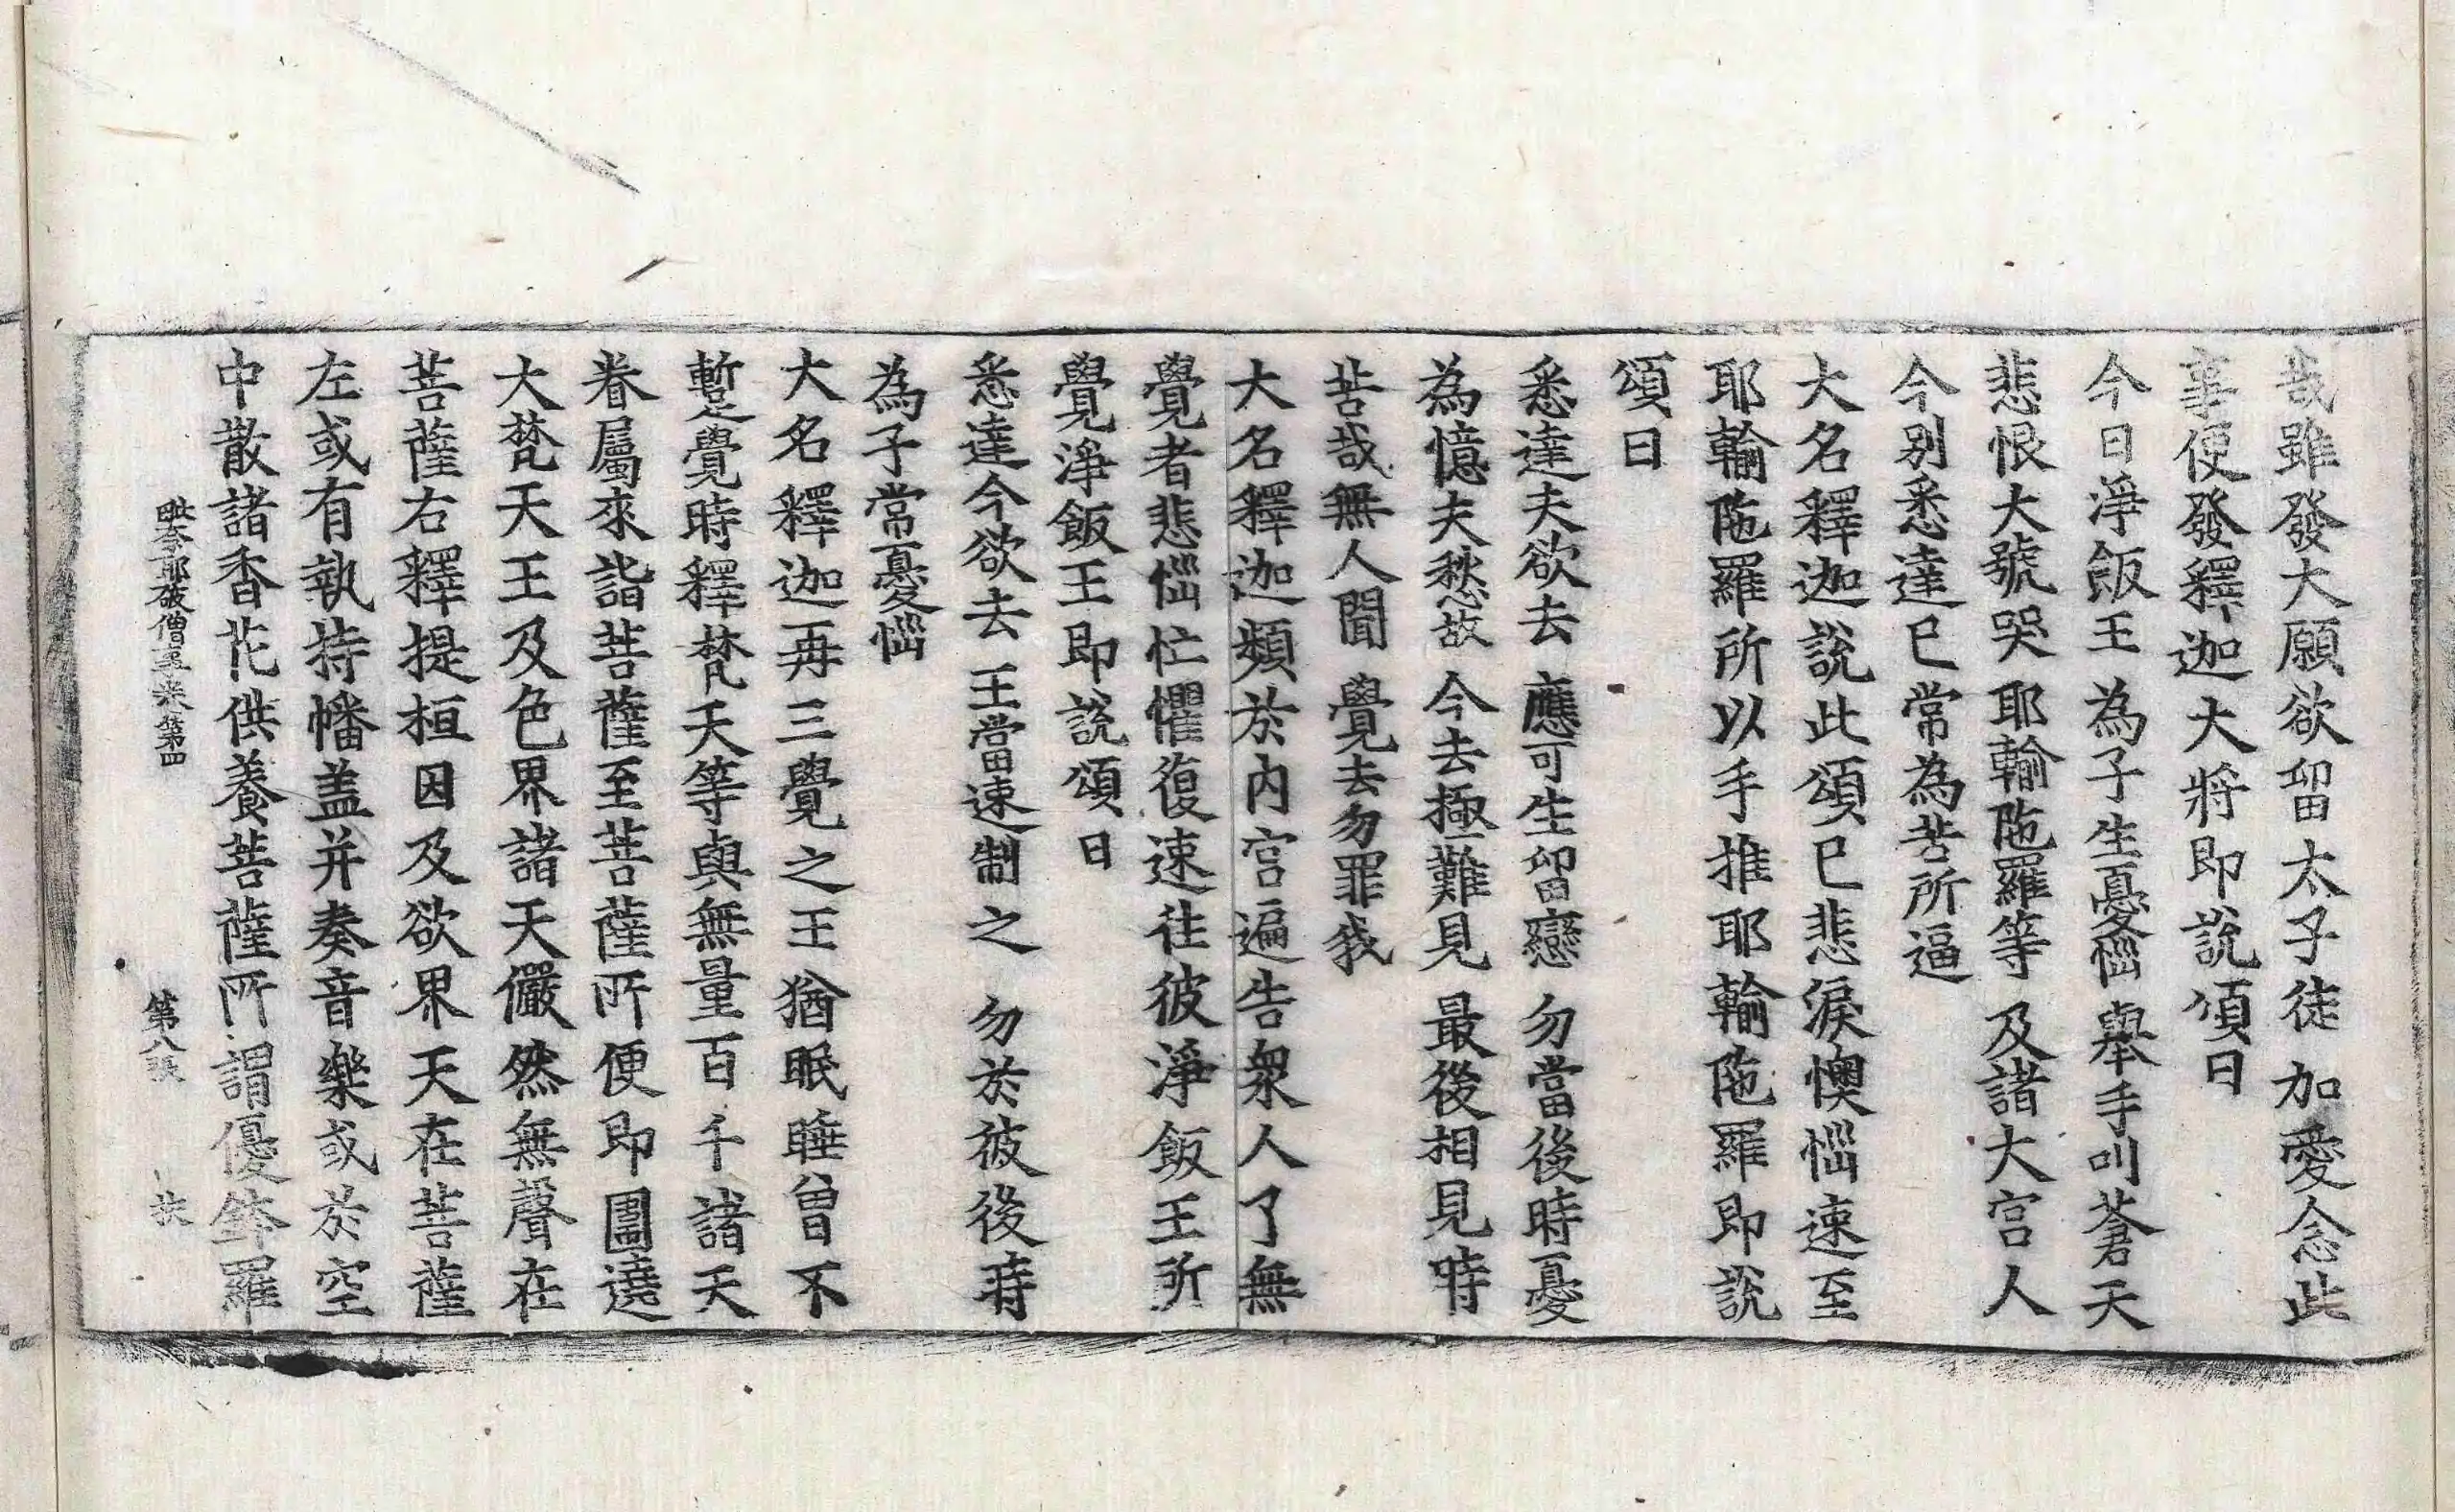 哉雖發大願欲留太子徒加愛念此
事便發釋迦大將即說頌曰
今日淨飯王 為子生憂惱 舉手叫蒼天
悲恨大號哭 耶輸陁羅等 及諸大宮人
今別悉達已 常為苦所逼
大名釋迦說此頌已悲淚懊惱速至
耶輸陁羅所以手推耶輸陁羅即說
頌曰
悉達夫欲去 應可生留戀 勿當後時憂
為憶夫愁故 今去極難見 最後相見時
苦哉無人聞 覺去勿罪我
大名釋迦頻於內宮遍告衆人了無
覺者悲惱忙懼復速往彼淨飯王所
覺淨飯王即說頌曰
悉達今欲去 王當速制之 勿於彼後時
為子常憂惱
大名釋迦再三覺之王猶眠睡曾不
暫覺時釋梵天等與無量百千諸天
眷屬來詣菩薩至菩薩所便即圍遶
大梵天王及色界諸天儼然無聲在
菩薩右釋提桓因及欲界天在菩薩
左或有執持幡盖并奏音樂或於空
中散諸香花供養菩薩所謂優鉢羅
毗奈耶破僧事卷第四 第八張 扶